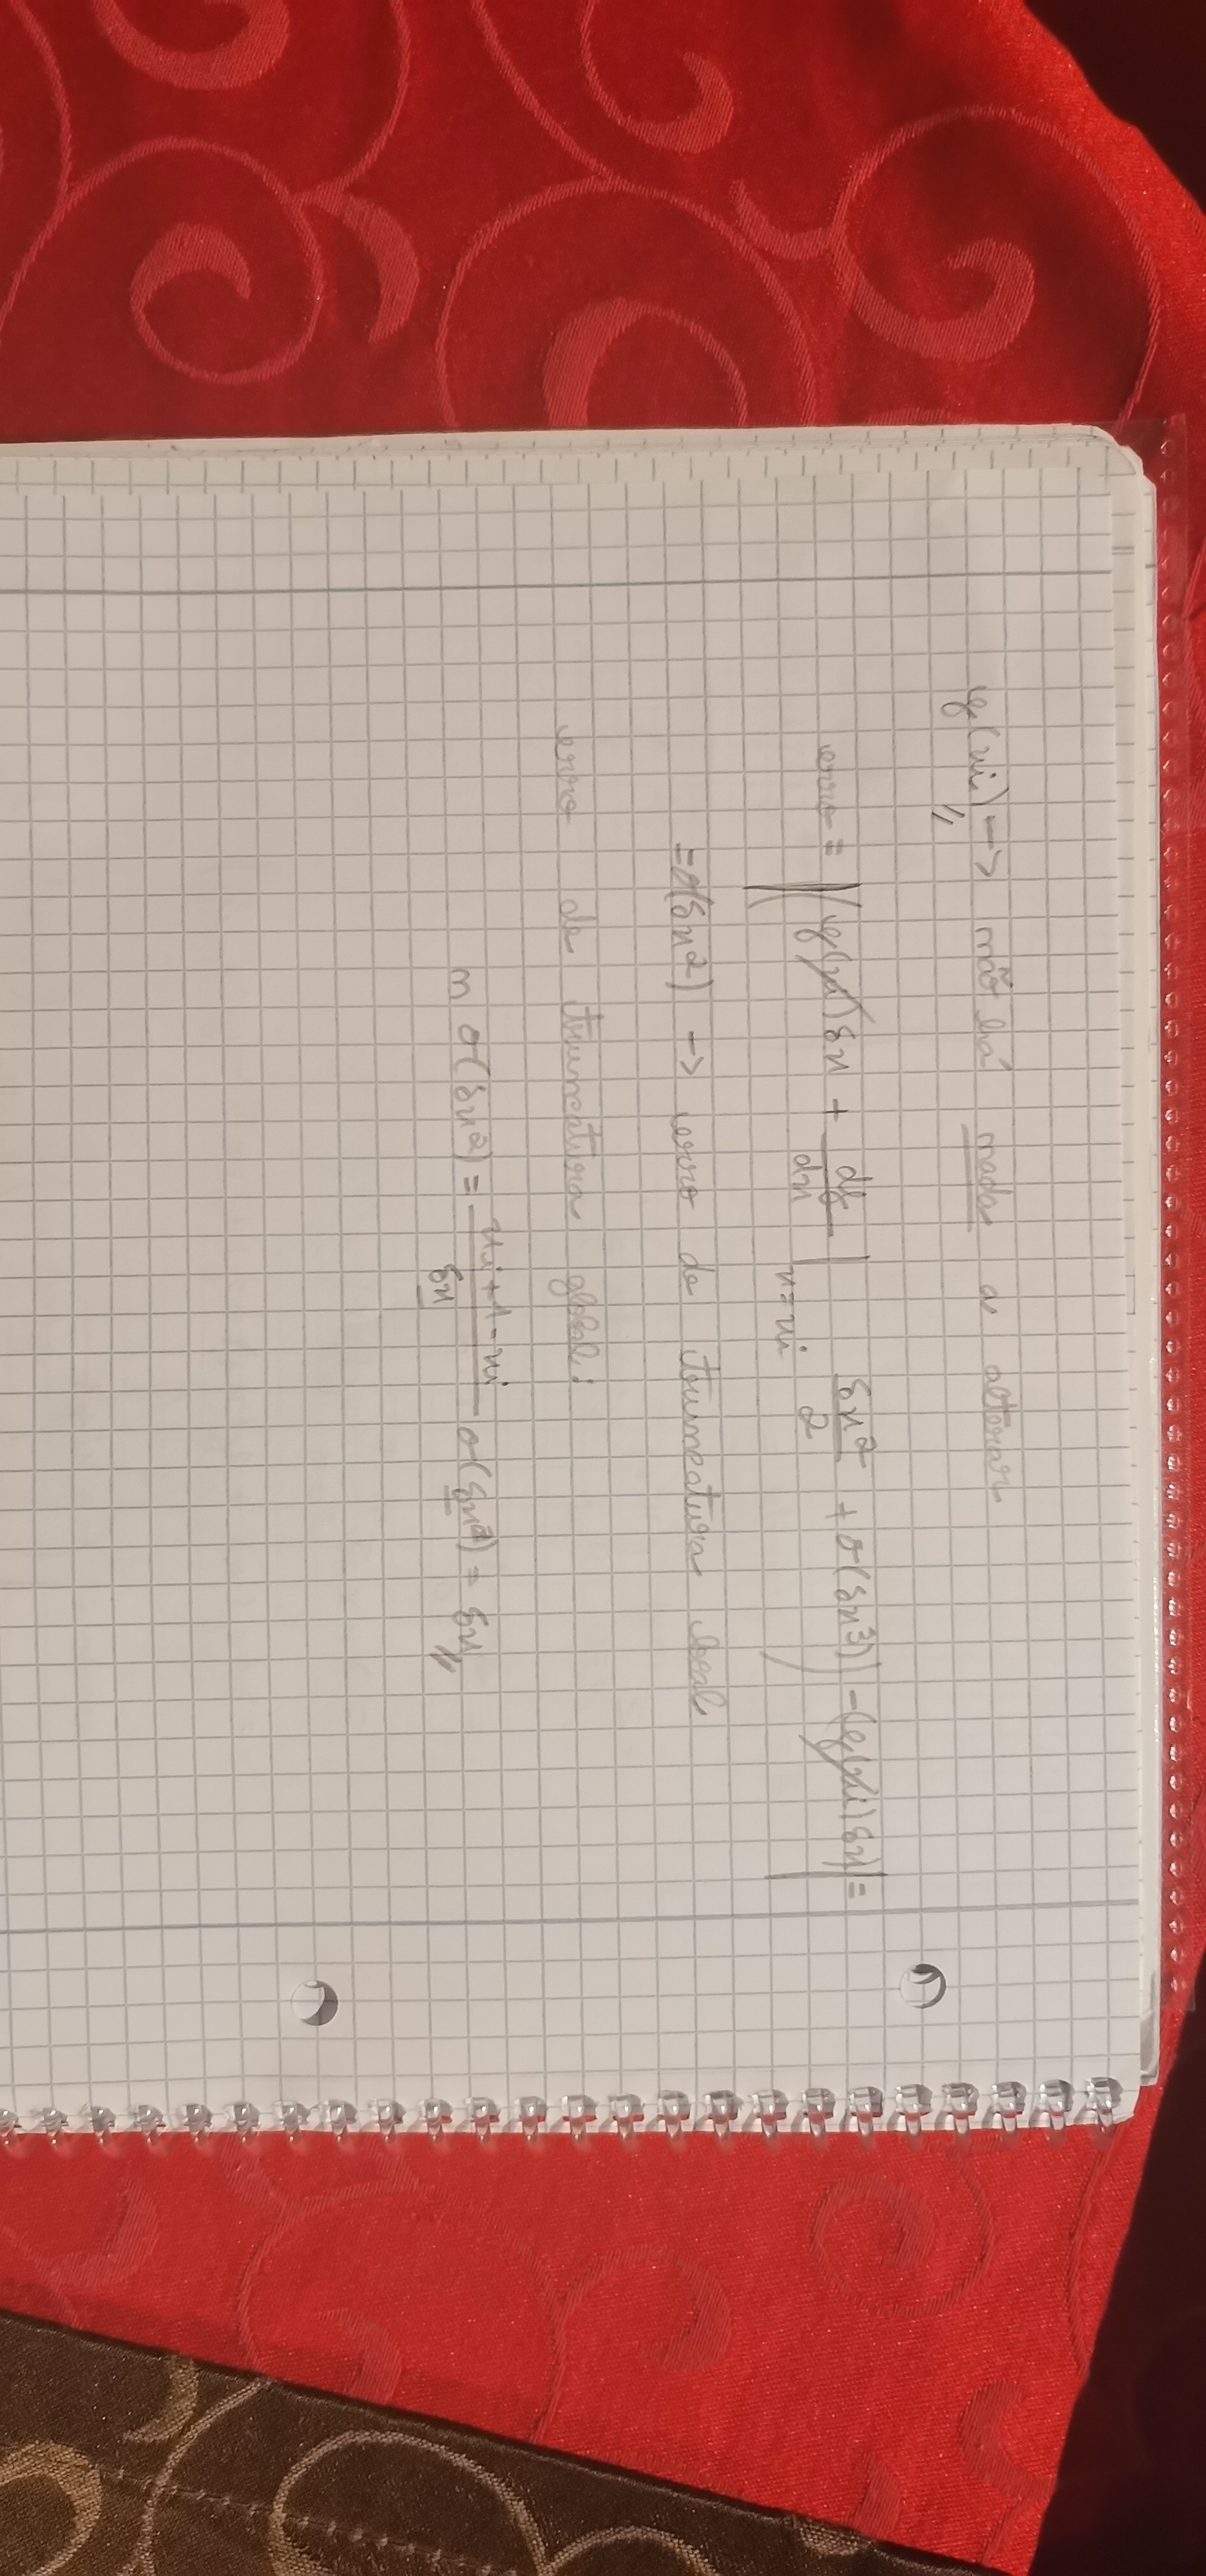 f(xi) → não há nada a alterar
erro = |(f(xi)δx + df/dx|x=xi δx²/2 + O(δx³)) - (f(xi)δx)| =
= O(δx²) → erro de truncatura local
erro de truncatura global:
n O(δx²) = xi+1 - xi / δx O(δx²) = δx